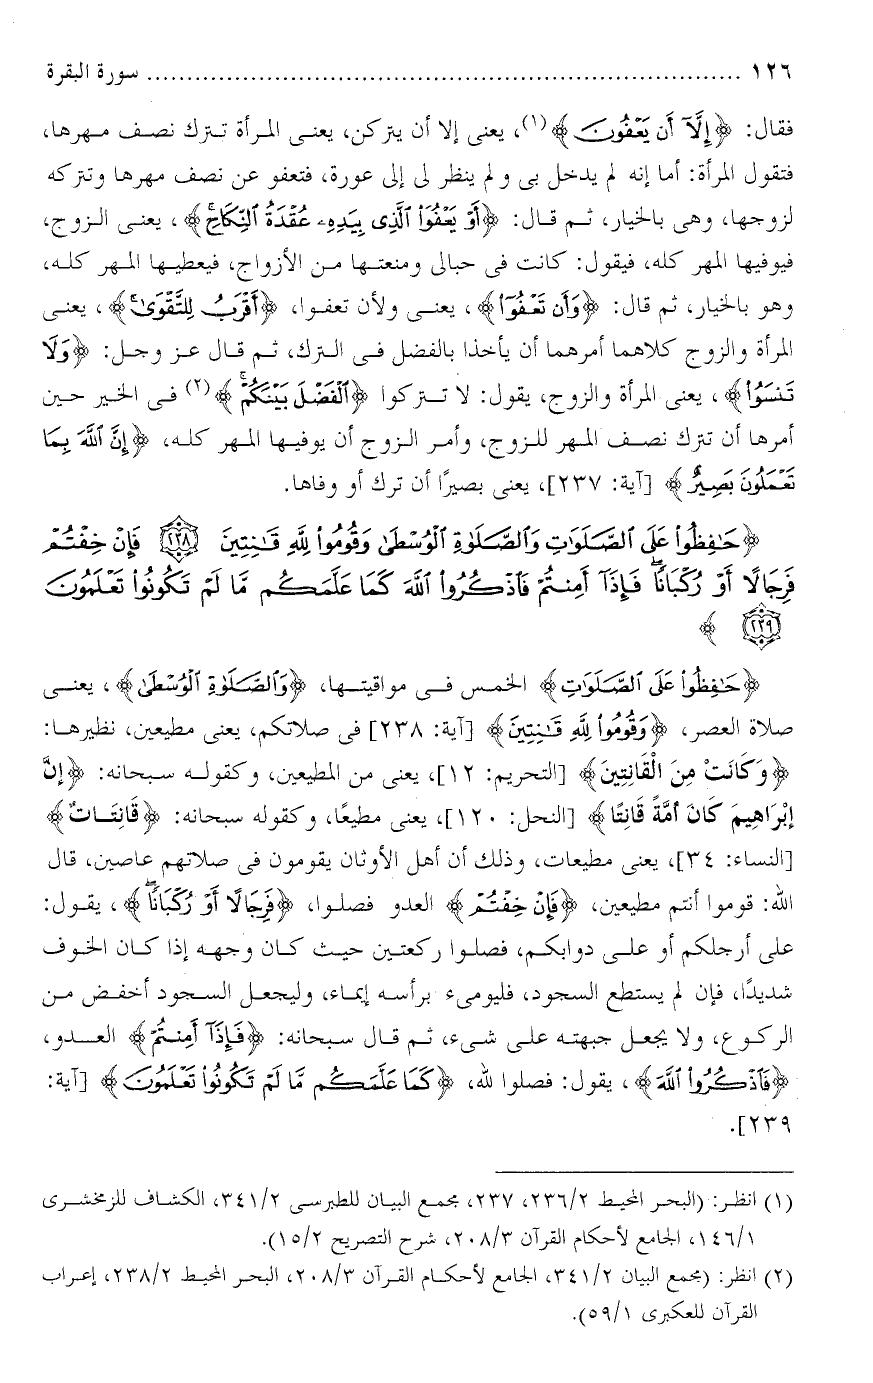 ١٢٦ ........................................................................ سورة البقرة
فقال: ﴿إِلَّآ أَن يَعْفُونَ﴾(١)، يعنى إلا أن يتركن، يعنى المرأة تترك نصف مهرها،
فتقول المرأة: أما إنه لم يدخل بى و لم ينظر لى إلى عورة، فتعفو عن نصف مهرها وتتركه
لزوجها، وهى بالخيار، ثم قال: ﴿أَوْ يَعْفُوَا۟ ٱلَّذِى بِيَدِهِۦ عُقْدَةُ ٱلنِّكَاحِ ۚ﴾، يعنى الزوج،
فيوفيها المهر كله، فيقول: كانت فى حبالى ومنعتها من الأزواج، فيعطيها المهر كله،
وهو بالخيار، ثم قال: ﴿وَأَن تَعْفُوٓا۟﴾، يعنى ولأن تعفوا، ﴿أَقْرَبُ لِلتَّقْوَىٰ ۚ﴾، يعنى
المرأة والزوج كلاهما أمرهما أن يأخذا بالفضل فى الترك، ثم قال عز وجل: ﴿وَلَا
تَنسَوُا۟﴾، يعنى المرأة والزوج، يقول: لا تتركوا ﴿ٱلْفَضْلَ بَيْنَكُمْ ۚ﴾(٢) فى الخير حين
أمرها أن تترك نصف المهر للزوج، وأمر الزوج أن يوفيها المهر كله، ﴿إِنَّ ٱللَّهَ بِمَا
تَعْمَلُونَ بَصِيرٌ﴾ [آية: ٢٣٧]، يعنى بصيرًا أن ترك أو وفاها.
﴿حَـٰفِظُوا۟ عَلَى ٱلصَّلَوَٰتِ وَٱلصَّلَوٰةِ ٱلْوُسْطَىٰ وَقُومُوا۟ لِلَّهِ قَـٰنِتِينَ ٢٣٨ فَإِنْ خِفْتُمْ
فَرِجَالًا أَوْ رُكْبَانًا ۖ فَإِذَآ أَمِنتُمْ فَٱذْكُرُوا۟ ٱللَّهَ كَمَا عَلَّمَكُم مَّا لَمْ تَكُونُوا۟ تَعْلَمُونَ
٢٣٩ ﴾
﴿حَـٰفِظُوا۟ عَلَى ٱلصَّلَوَٰتِ﴾ الخمس فى مواقيتها، ﴿وَٱلصَّلَوٰةِ ٱلْوُسْطَىٰ﴾، يعنى
صلاة العصر، ﴿وَقُومُوا۟ لِلَّهِ قَـٰنِتِينَ﴾ [آية: ٢٣٨] فى صلاتكم، يعنى مطيعين، نظيرها:
﴿وَكَانَتْ مِنَ الْقَانِتِينَ﴾ [التحريم: ١٢]، يعنى من المطيعين، وكقوله سبحانه: ﴿إِنَّ
إِبْرَاهِيمَ كَانَ أُمَّةً قَانِتًا﴾ [النحل: ١٢٠]، يعنى مطيعًا، وكقوله سبحانه: ﴿قَانِتَاتٌ﴾
[النساء: ٣٤]، يعنى مطيعات، وذلك أن أهل الأوثان يقومون فى صلاتهم عاصين، قال
الله: قوموا أنتم مطيعين، ﴿فَإِنْ خِفْتُمْ﴾ العدو فصلوا، ﴿فَرِجَالًا أَوْ رُكْبَانًا ۖ﴾، يقول:
على أرجلكم أو على دوابكم، فصلوا ركعتين حيث كان وجهه إذا كان الخوف
شديدًا، فإن لم يستطع السجود، فليومىء برأسه إيماء، وليجعل السجود أخفض من
الركوع، ولا يجعل جبهته على شىء، ثم قال سبحانه: ﴿فَإِذَآ أَمِنتُمْ﴾ العدو،
﴿فَٱذْكُرُوا۟ ٱللَّهَ﴾، يقول: فصلوا لله، ﴿كَمَا عَلَّمَكُم مَّا لَمْ تَكُونُوا۟ تَعْلَمُونَ﴾ [آية:
٢٣٩].
(١) انظر: (البحر المحيط ٢٣٦/٢، ٢٣٧، مجمع البيان للطبرسى ٣٤١/٢، الكشاف للزمخشرى
١٤٦/١، الجامع لأحكام القرآن ٢٠٨/٣، شرح التصريح ١٥/٢).
(٢) انظر: (مجمع البيان ٣٤١/٢، الجامع لأحكام القرآن ٢٠٨/٣، البحر المحيط ٢٣٨/٢، إعراب
القرآن للعكبرى ٥٩/١).